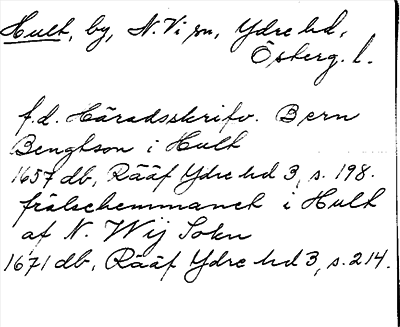 Hult, by, N. Vi sn, Ydre hd,
Österg. l.
f.d. Häradsskrifv. Bern
Bengtson i Hult
1657 db, Rääf Ydre hd 3, s. 198.
frälsehemmanet i Hult
af N. Wij Sokn
1671 db, Rääf Ydre hd 3, s. 214.